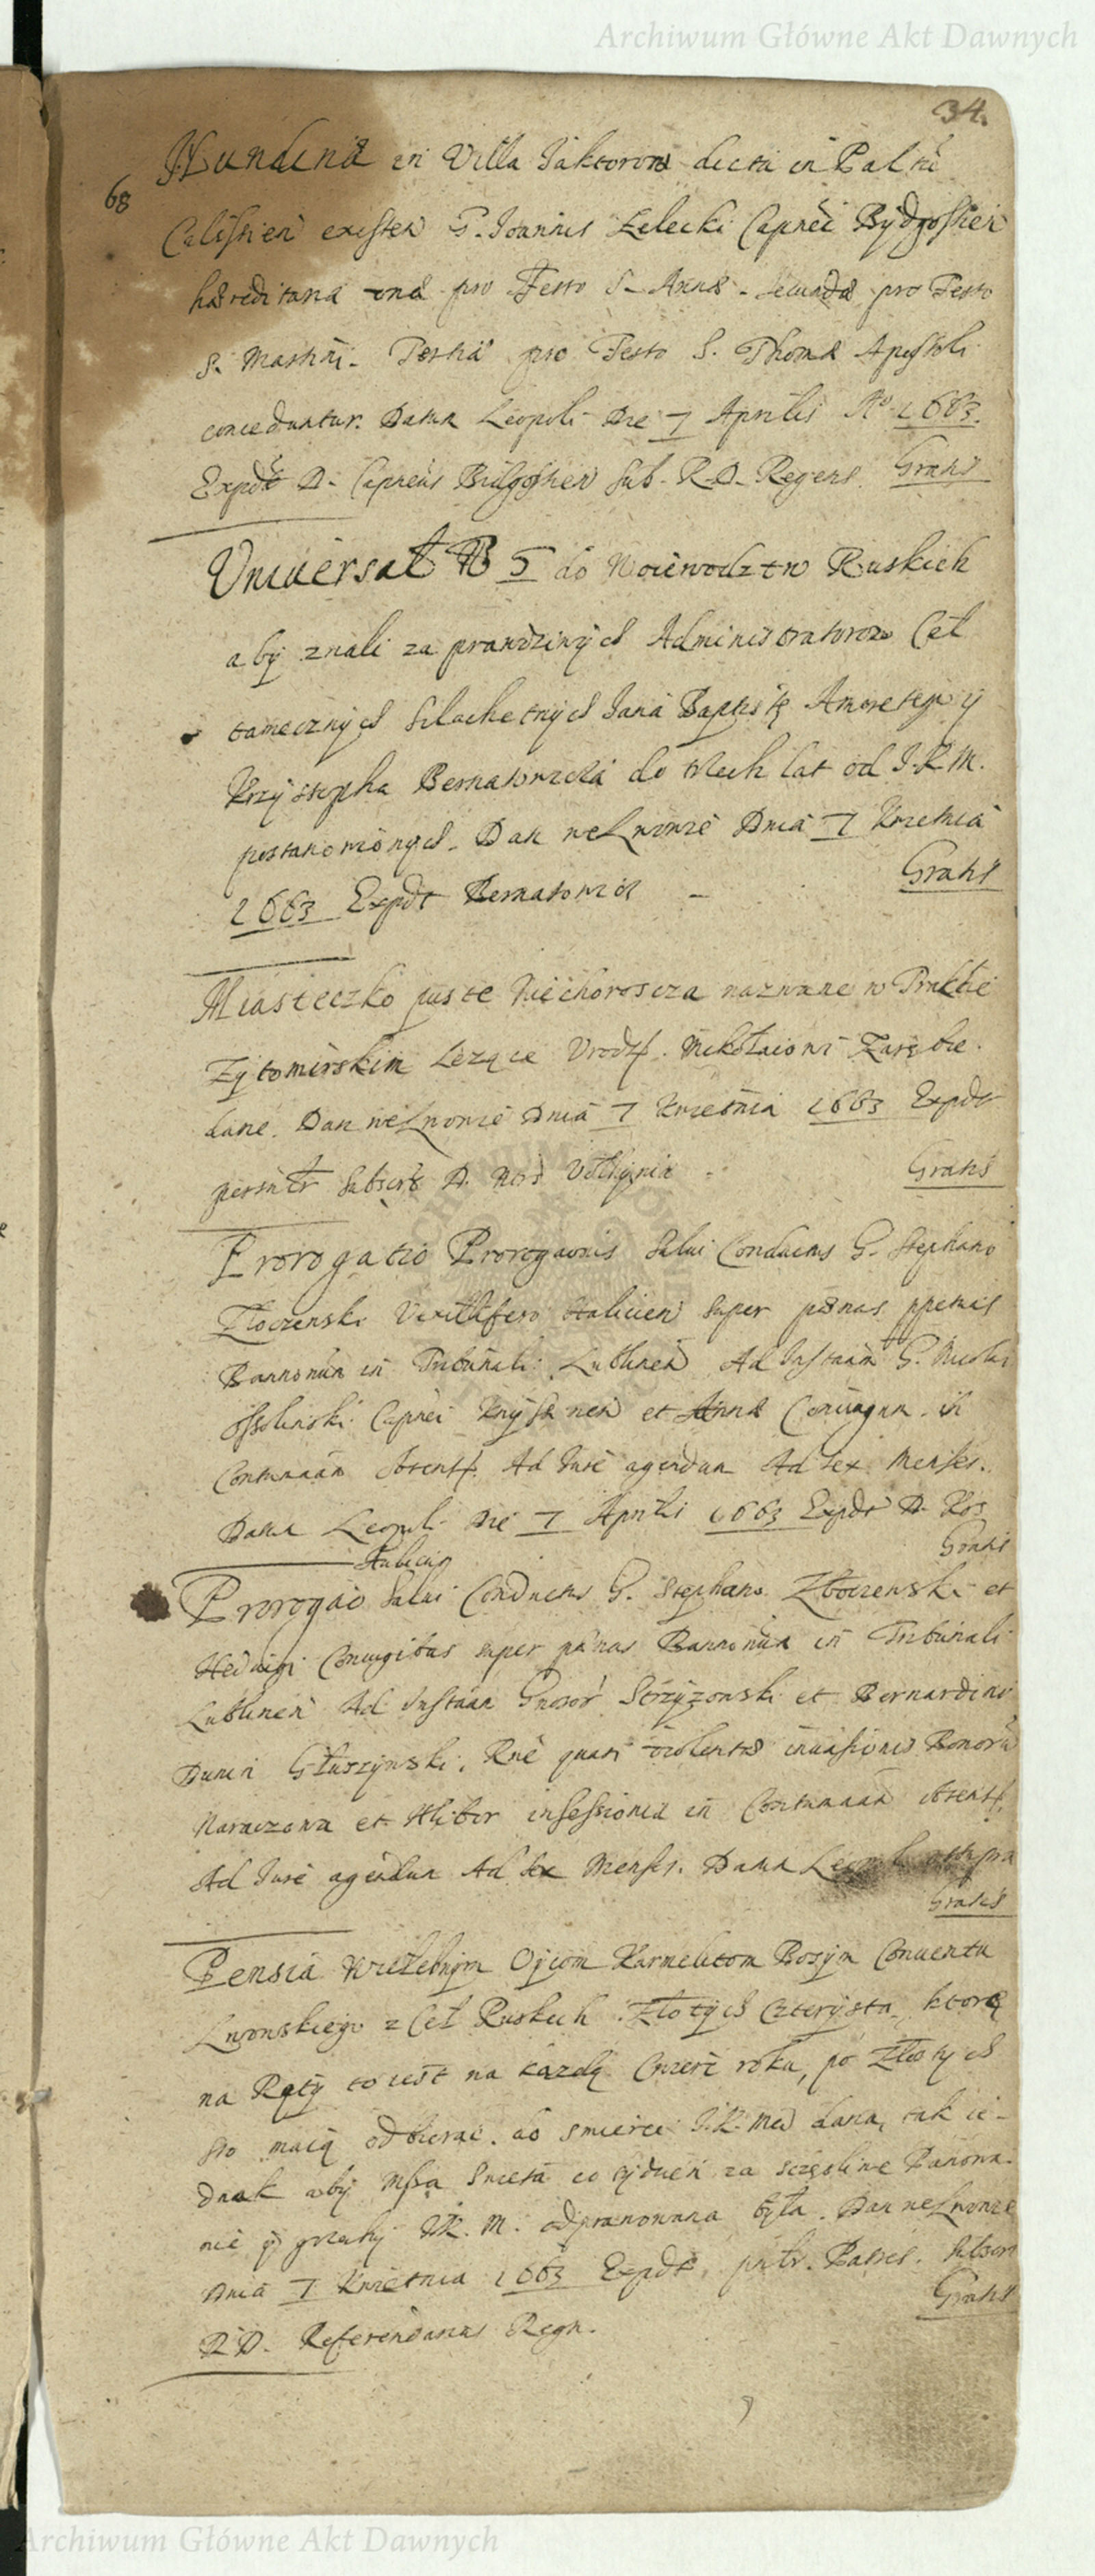 Archiwum Główne Akt Dawnych
34.
68
Nundinæ in Villa Jaktorowo dicta in Paltū
Calisſien existen G. Joannis Zelecki Capnei Bydgosſien
hæreditaria una pro Festo S. Annæ. Secunda pro Festo
S. Martini. Tertia pro Festo S. Thomæ Apostoli
conceduntur. Datum Leopoli Die 7 Aprilis Aº 1663.
Expdt D. Capneus Bidgosſien sub. R.D. Regens. Gratis
Vniuersał 5 do Woiewodztw Ruskich
aby znali za prawdziwych Administratorow Ceł
tamecznych szlachetnych Jana Baptistę Amoretego y
Krzysztopha Bernatowicza do trzech lat od J.K.M.
postanowionych. Dan we Lwowie Dnia 7 Kwietnia
1663 Expdt Bernatowicz
Gratis
Miasteczko puste Niechoroscza nazwane w Powiecie
Zytomirskim Lezące Vrodz. Mikołaiowi Zarębie
dane. Dan we Lwowie Dnia 7 Kwietnia 1663 Expdt
Subscr D.
Gratis
Prorogatio Prorogaonis Salui Conductus G. Stephano
Złoczewski Vexillifero Halicien super pænas ppetuæ
Bannonum in Tribunali Lublinen Ad Instaam G.
Ossolinski Capnei et Annæ Coniugum in
Contumaām Ad Jure agendum Ad sex Menses.
Datum Leopoli Die 7 Aprilis 1663 Expdt D.
Gratis
Prorogao Salui Conductus G. Stephano Złoczewski et
Hedwigi Coniugibus super pænas Bannonum in Tribunali
Lublinen Ad Instaām Gnosor Strzyzowski et Bernardino
Dunin Głuszynski, Rne quasi violentæ inuasionis Bonorū
et in Contumaām
Ad Jure agendum Ad sex Menses. Datum Leopoli ut supra
Gratis
Pensia Wielebnym Oycom Karmelitom Bosym Conuentu
Lwowskiego z Ceł Ruskich Złotych Czterysta, ktorą
na Raty to iest na kazdą Cwierć roku, po Złotych
Sto maią odbierać do smierci J.K.Mci dana, tak ie-
dnak aby Msza Swieta co tydzien za sczęsliwe Panowa-
nie y grzechy J.K.M. odprawowana była. Dan we Lwowie
Dnia 7 Kwietnia 1663 Expdt, Patres. Subscr
RD. Referendarius Regn.
Gratis
Archiwum Główne Akt Dawnych